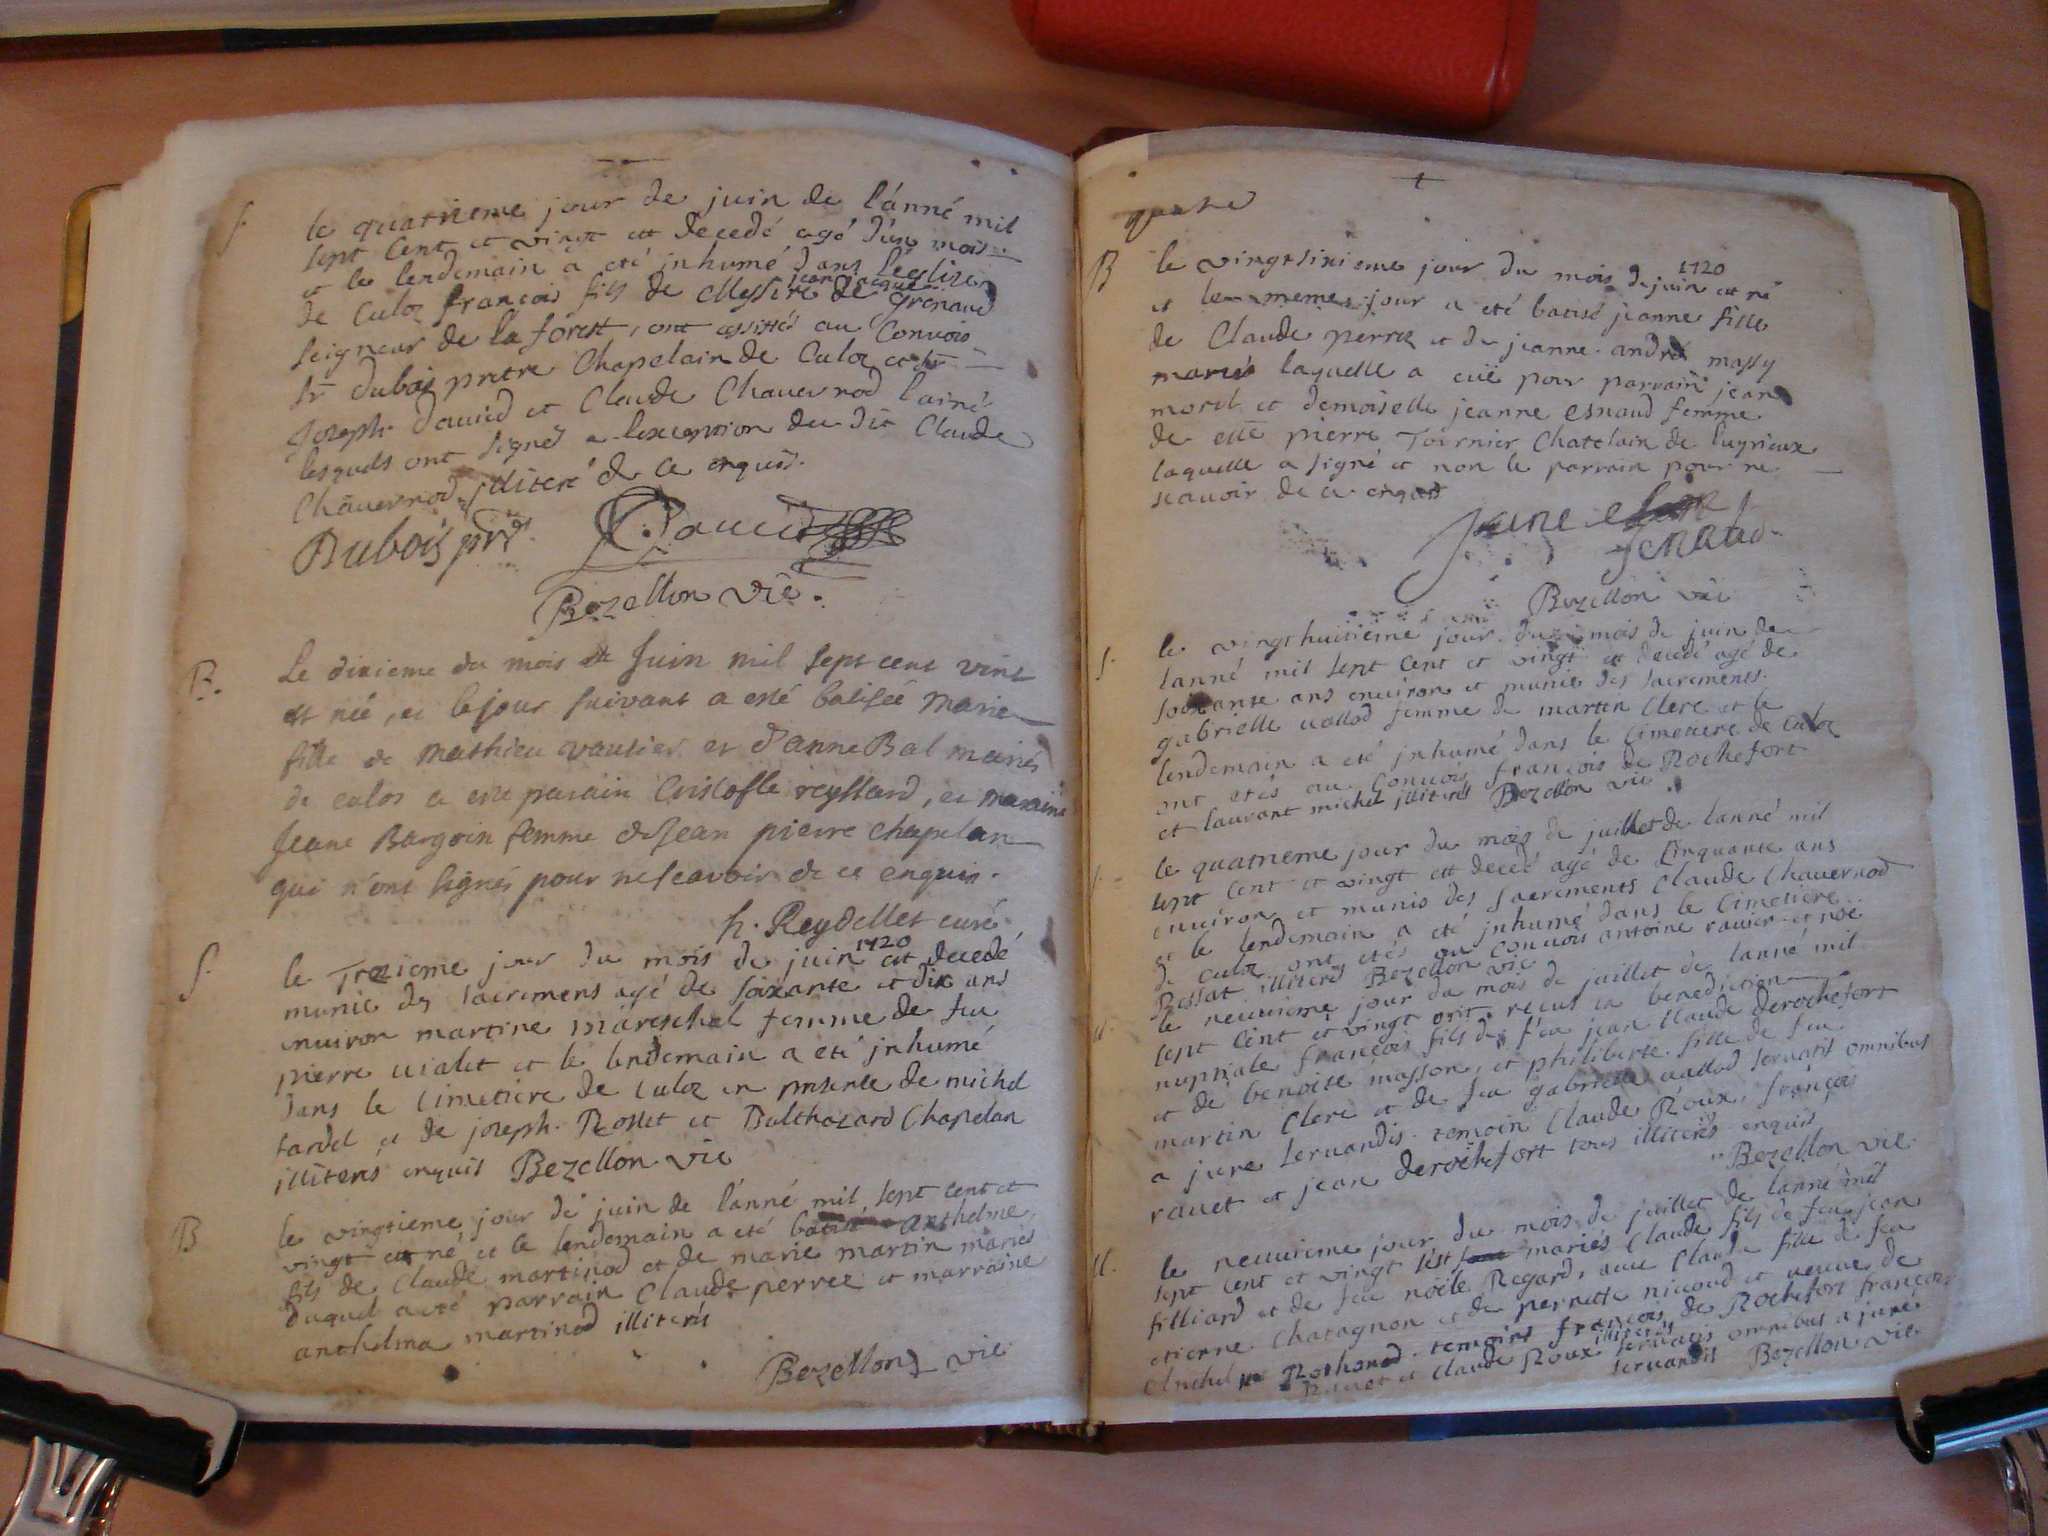 S.
le quatrieme jour de juin de l'anné mil
sept Cent et vingt est decedé agé d'un mois
et le lendemain a eté jnhumé dans l'eglise
jean jaque
de Culoz françois fils de Messire de Grenaud
seigneur de la forest, ont assistés au Convois
Sr. dubois pretre Chapelain de Culoz et Sr
Joseph David et Claude Chavernod l'ainé
lesquels ont signés a l'exception du dit Claude
Chavernod jlliteré de ce enquis.
Dubois ptre
David
Bezellon vic.
B.
Le dixieme du mois de Juin mil sept cent vint
est née, et le jour suivant a esté batisée Marie
fille de Mathieu vautier et d'anne Bal mariés
de culos a esté parain Cristofle reyssard, et maraine
Jeane Bargoin femme de Jean pierre chapelan
qui n'ont signés pour ne scavoir de ce enquis.
h. Reydellet curé
S.
le Trezieme jour du mois de juin 1720 est decedé
munie des sacremens agé de soixante et dix ans
environ martine mareschal femme de feu
pierre vialet et le lendemain a eté jnhumé
dans le Cimetiere de Culoz en presence de michel
tardel et de joseph Rosset et Balthazard Chapelan
illiterés enquis Bezellon vic
B
le vingtieme jour de juin de l'anné mil sept cent et
vingt est né et le lendemain a eté batisé anthelme
fils de Claude martinod et de marie martin mariés
duquel a eté parrain Claude perrez et marraine
anthelma martinod illiterés
Bezellon vic
B
le vingtsixieme jour du mois de juin 1720 est né
et le meme jour a eté batisé jeanne fille
de Claude perrez et de jeanne andré massy
mariés laquelle a euë pour parrain jean
morel et demoiselle jeanne esnaud femme
de pierre Tournier Chatelain de luyrieux
laquelle a signé et non le parrain pour ne
scavoir de ce enquis
Jeane
senaud
Bezellon vic
S.
le vingthuitieme jour du mois de juin de
lanné mil sept Cent et vingt est decedé agé de
soixante ans environ et munie des sacrements
gabrielle vallod femme de martin Clerc et le
lendemain a eté jnhumé dans le Cimetiere de Culoz
ont etés au Convois françois de Rochefort
et laurant michel jlliterés Bezellon vic
S.
le quatrieme jour du mois de juillet de lanné mil
sept Cent et vingt est decedé agé de Cinquante ans
environ et munis des sacrements Claude Chavernod
et le lendemain a eté jnhumé dans le Cimetiere
de culoz ont etés au Convois antoine ravier et noé
Bessat illiterés Bezellon vic
M.
le neuvieme jour du mois de juillet de lanné mil
sept Cent et vingt ont recus la benediction
nuptiale françois fils de feu jean Claude derochefort
et de benoite masson, et philiberte fille de feu
martin Clerc et de feu gabrielle vallod servatis omnibus
a jure servandis temoin Claude Roux, françois
ravet et jean derochefort tous illiterés enquis
Bezellon vic
M.
le neuvieme jour du mois de juillet de lanné mil
sept Cent et vingt sest mariés Claude fils de feu jean
filliard et de feu noële Regard, avec Claude fille de feu
etienne Chatagnon et de pernette nicoud et veuve de
Michel Rothonod temoins françois de Rochefort françois
illiterés
Ravet et Claude Roux servatis omnibus a jure
servandis Bezellon vic